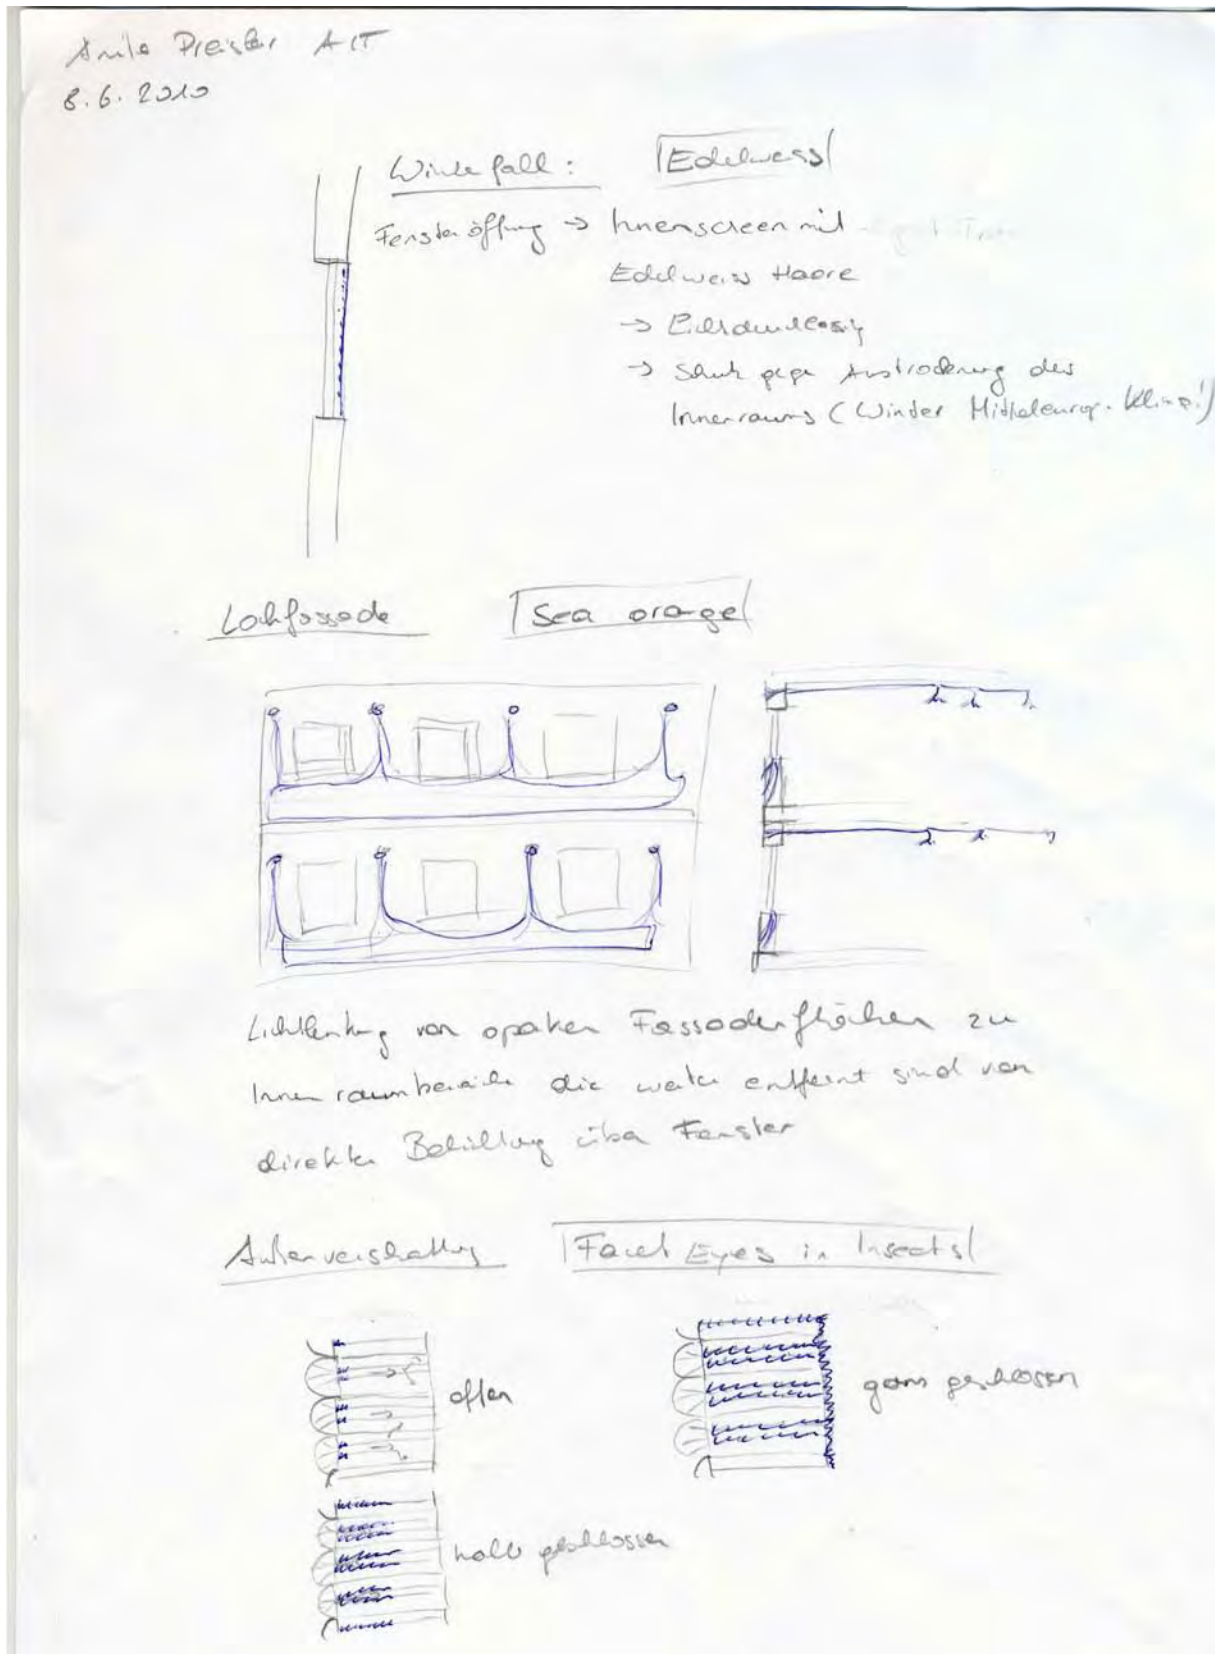 Anita Preisler AIT
8.6.2010
Winterfall: Edelweiss
Fensteröffnung → Innenscreen mit
Edelweiss Haare
→ Lichtdurchlässig
→ Schutz gegen Austrocknung des
Innenraums (Winter Mitteleurop. Klima!)
Lochfassade Sea orange
Lichtlenkung von opaken Fassadenflächen zu
Innenraumbereiche die weiter entfernt sind von
direkter Belichtung über Fenster
Außenverschattung Facet Eyes in Insects
offen
ganz geschlossen
halb geschlossen